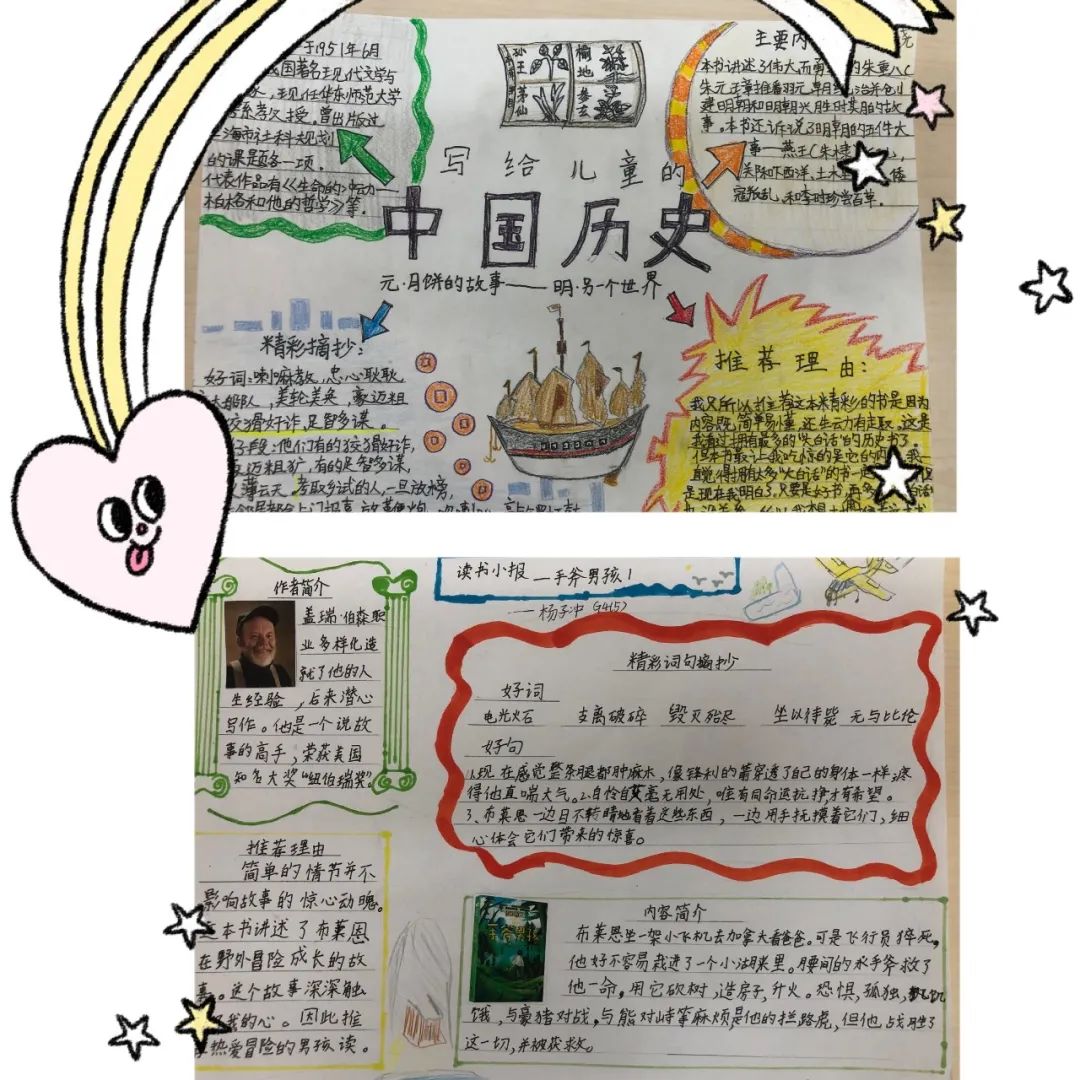 于1951年6月
国著名王见代文学与
,现任华东师范大学
系教授。曾出版过
海市社科规划
的课题各一项。
代表作品有《生命的冲动—
柏格和他的哲学》等。
孙王
茅仙
榆地
参玄
写给儿童的
中国历史
元·月饼的故事——明·另一个世界
主要内
本书讲述了伟大而勇 的朱重八(
朱元璋推番羽元朝 治并仓刂
建明朝和明朝兴胜时其月的故
事。本书还诉说了明朝的五件大
事—燕王(朱棣
关际下西洋,土木 倭
寇叛乱,和李时珍尝百草。
精彩摘抄:
好词:喇嘛教,忠心耿耿
船队,美轮美奂,豪迈粗
狡猾好诈,足智多谋。
子段:他们有的狡猾好诈,
迈粗犷,有的足智多谋,
薄云天。考取乡试的人,一旦放榜,
推荐理由:
我只所以推荐这本精彩的书是因为
内容既简单易懂,还生云力有走取,这是
我看过拥有最多的“大白话”的历史书了。
但本书最让我吃惊的是它的内 我一
直觉得拥有太多“大白话”的书一定
是现在我明白了,只要是好书,再多 白话
读书小报——手斧男孩1
——杨子冲(1415)
作者简介
盖瑞·伯森职
业多样化造
就了他的人
生经验,后来潜心
写作。他是一个说故
事的高手,荣获美国
知名大奖“纽伯瑞奖”。
精彩词句摘抄
好词
电光火石 支离破碎 毁灭殆尽 坐以待毙 无与比伦
好句
1.现在感觉整条腿都肿麻木,像锋利的箭穿透了自己的身体一样,疼
得他直喘大气。2.自怜自艾毫无用处,唯有同命运抗挣才有希望。
3、布莱恩一边目不转睛地看着这些东西,一边用手抚摸着它们,细
心体会它们带来的惊喜。
推荐理由
简单的情节并不
影响故事的惊心动魄。
本书讲述了布莱恩
在野外冒险成长的故
事。这个故事深深触
我的心。因此推
热爱冒险的男孩读。
手斧男孩
内容简介
布莱恩坐一架小飞机去加拿大看爸爸。可是飞行员猝死,
他好不容易栽进了一个小湖里。腰间的水手斧救了
他一命,用它砍树,造房子,升火。恐惧,孤独,饥
饿,与豪猪对战,与熊对峙等麻烦是他的拦路虎,但他战胜了
这一切,并被获救。